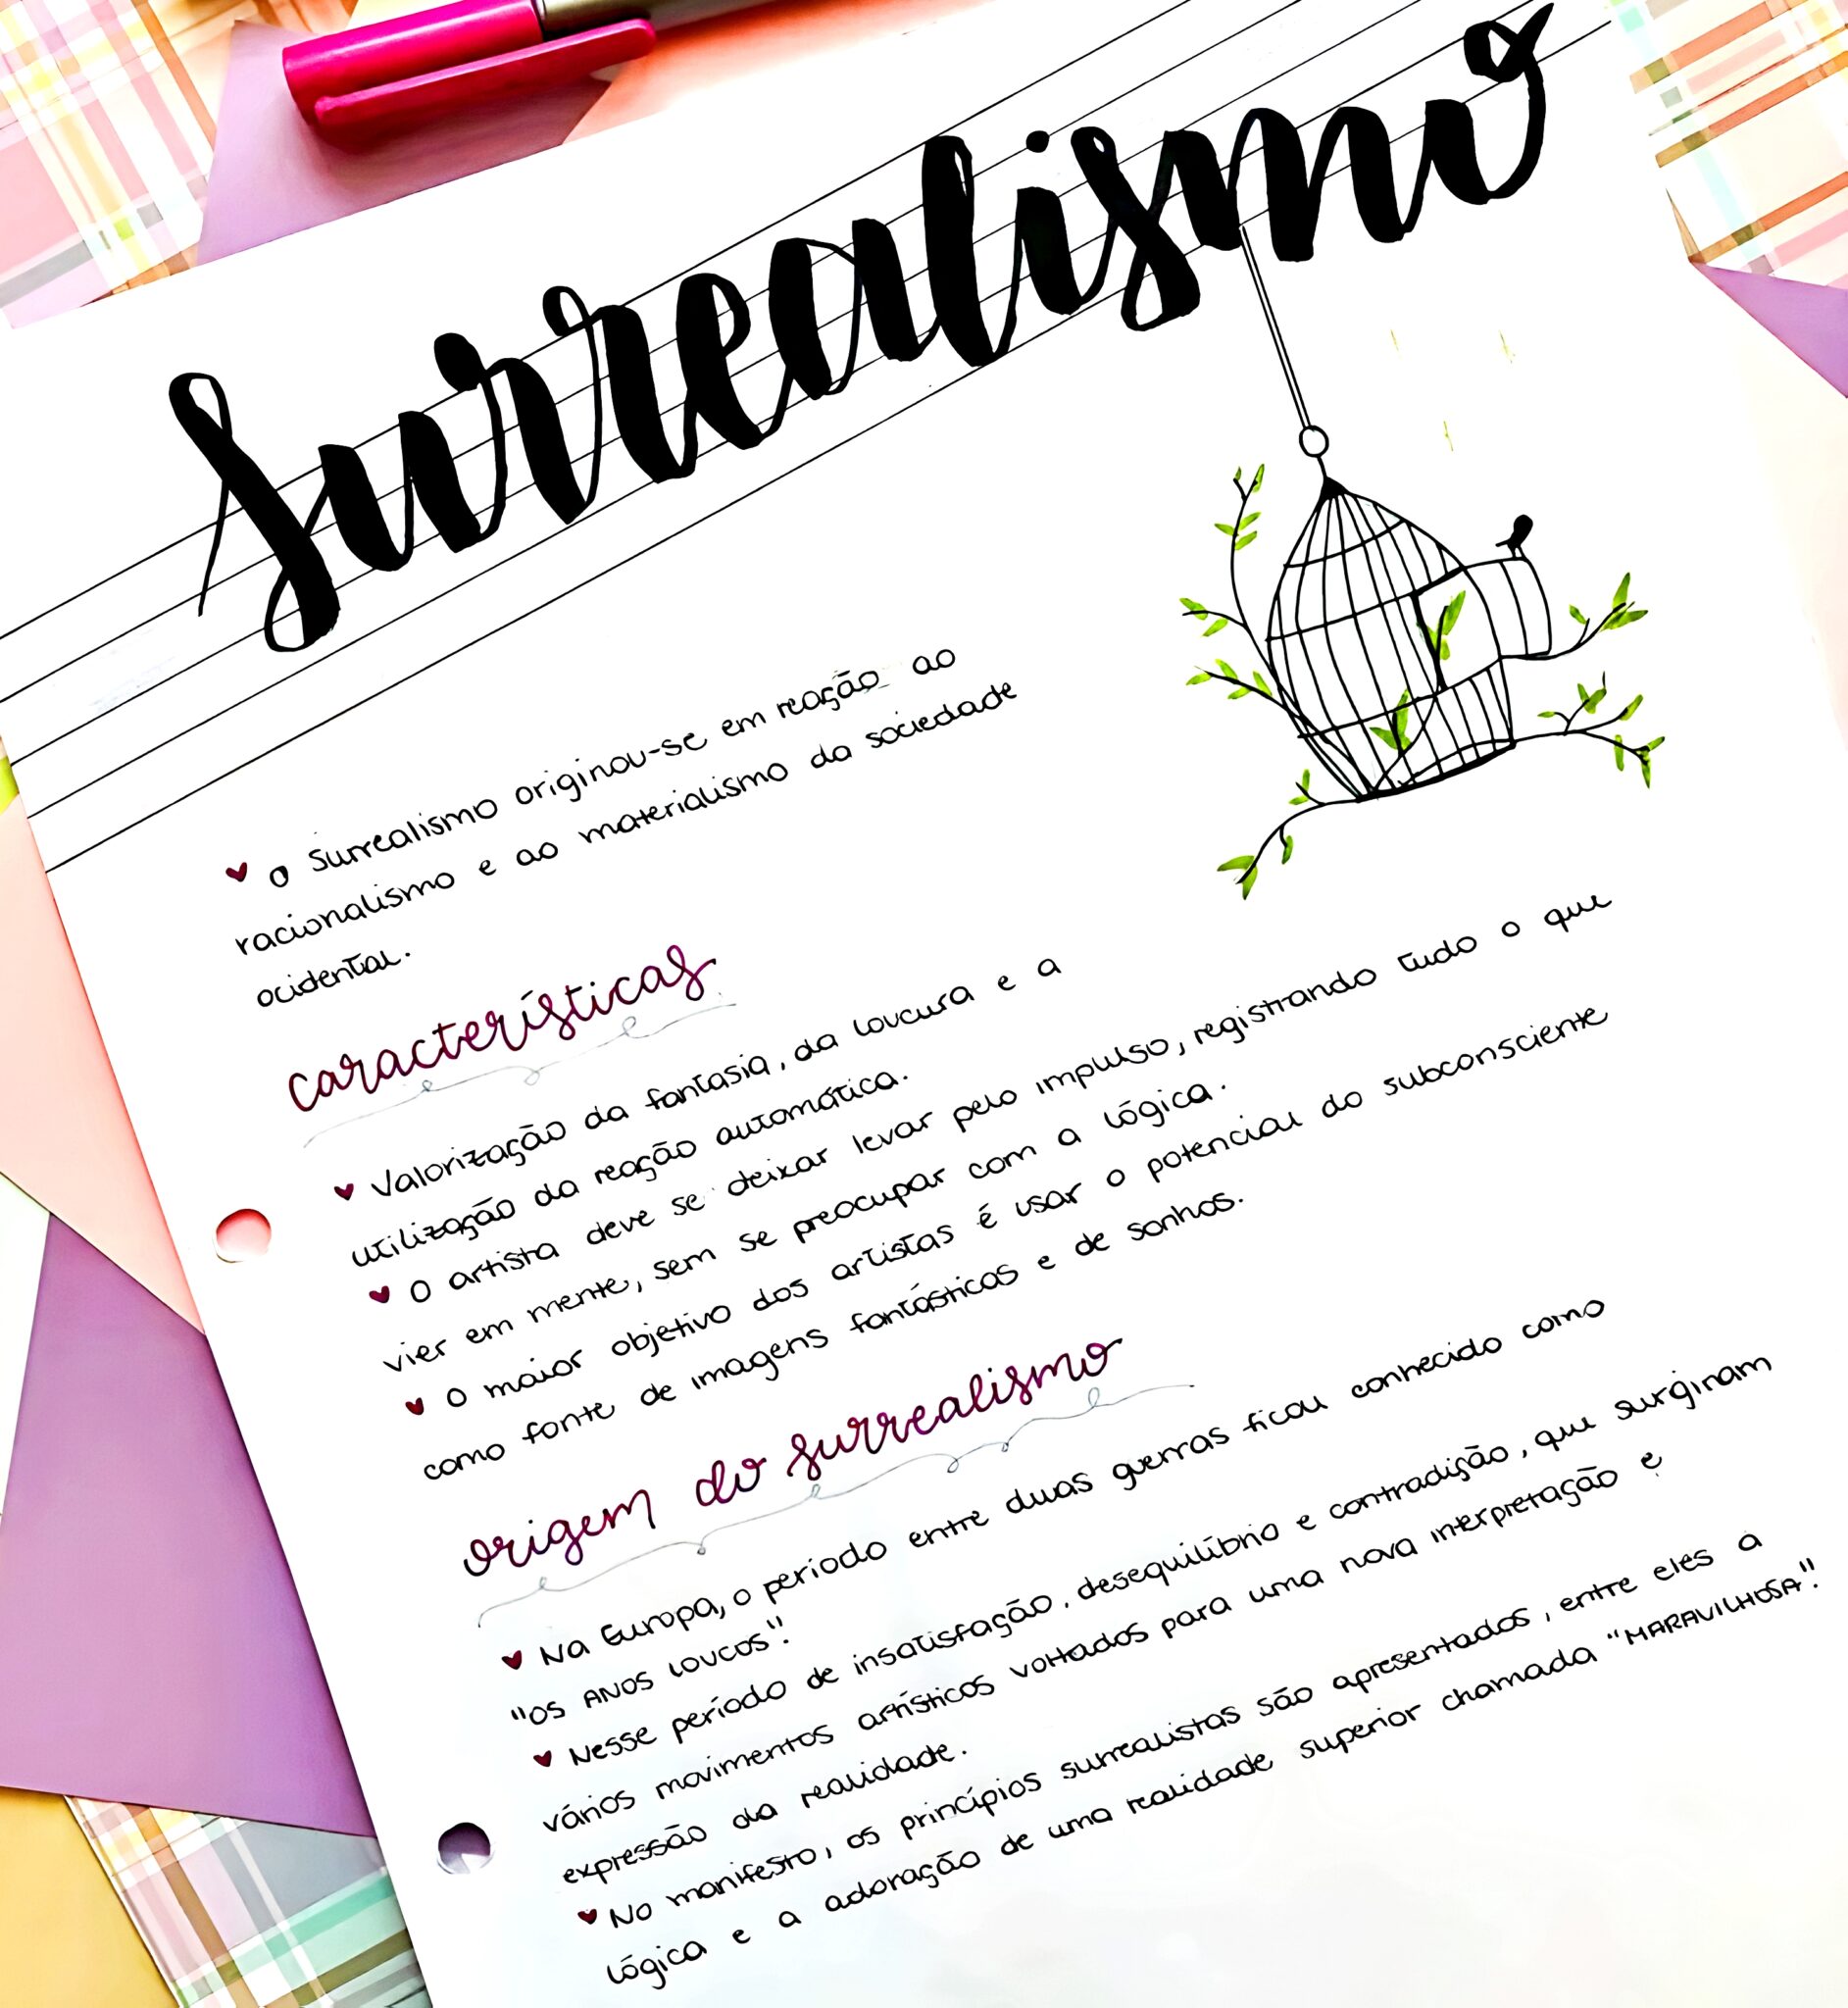 Surrealismo
O Surrealismo originou-se em reação ao
racionalismo e ao materialismo da sociedade
ocidental.
características
Valorização da fantasia, da loucura e a
utilização da reação automática.
O artista deve se deixar levar pelo impulso, registrando tudo o que
vier em mente, sem se preocupar com a lógica.
O maior objetivo dos artistas é usar o potencial do subconsciente
como fonte de imagens fantásticas e de sonhos.
origem do surrealismo
Na Europa, o período entre duas guerras ficou conhecido como
"OS ANOS LOUCOS".
Nesse período de insatisfação, desequilíbrio e contradição, que surginam
vários movimentos artísticos voltados para uma nova interpretação e
expressão da realidade.
No manifesto, os princípios surrealistas são apresentados, entre eles a
lógica e a adoração de uma realidade superior chamada "MARAVILHOSA".